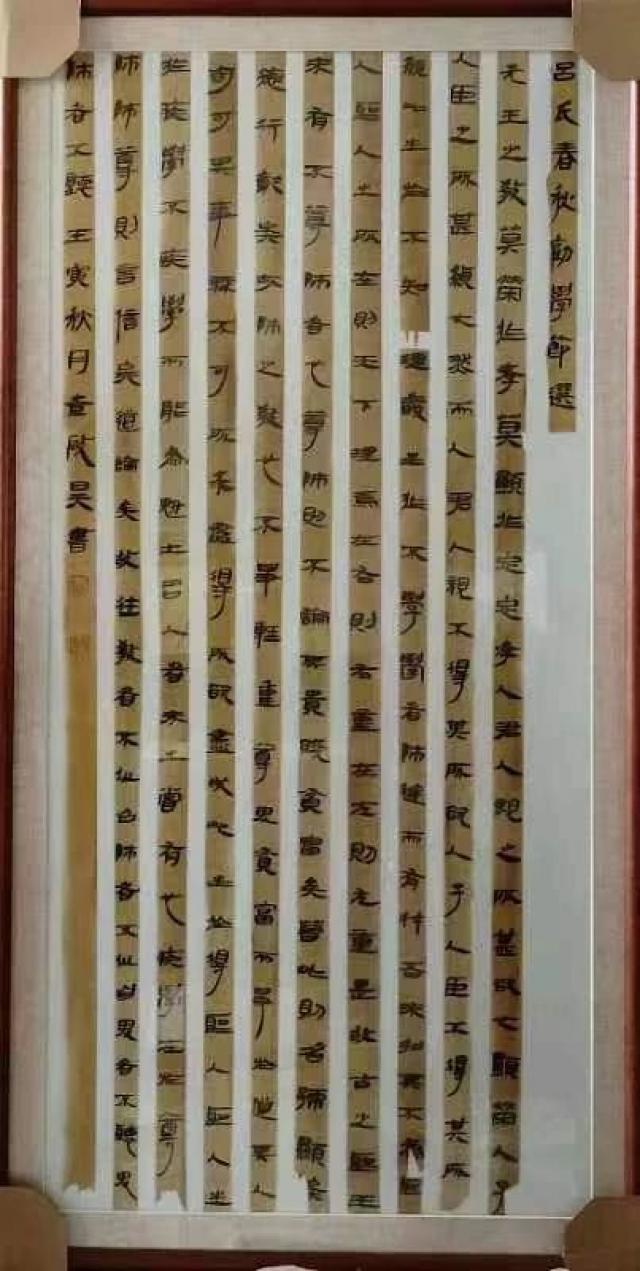 呂氏春秋勸學節選
先王之教莫榮於孝莫顯於忠忠孝人君人親之所甚欲也顯榮人子
人臣之所甚願也然而人君人親不得其所欲人子人臣不得其所
願此生於不知理義生於不學學者師達而有材吾未知其不為聖
人聖人之所在則天下理焉在右則右重在左則左重是故古之聖王
未有不尊師者也尊師則不論其貴賤貧富矣若此則名號顯矣
德行彰矣故師之教也不爭輕重尊卑貧富而爭於道其人
苟可其事無不可所求盡得所欲盡成此生於得聖人聖人生
於疾學不疾學而能為魁士名人者未之嘗有也疾學在於尊
師師尊則言信矣道論矣故往教者不化召師者不化自卑者不聽卑
師者不聽 壬寅秋月查昊書